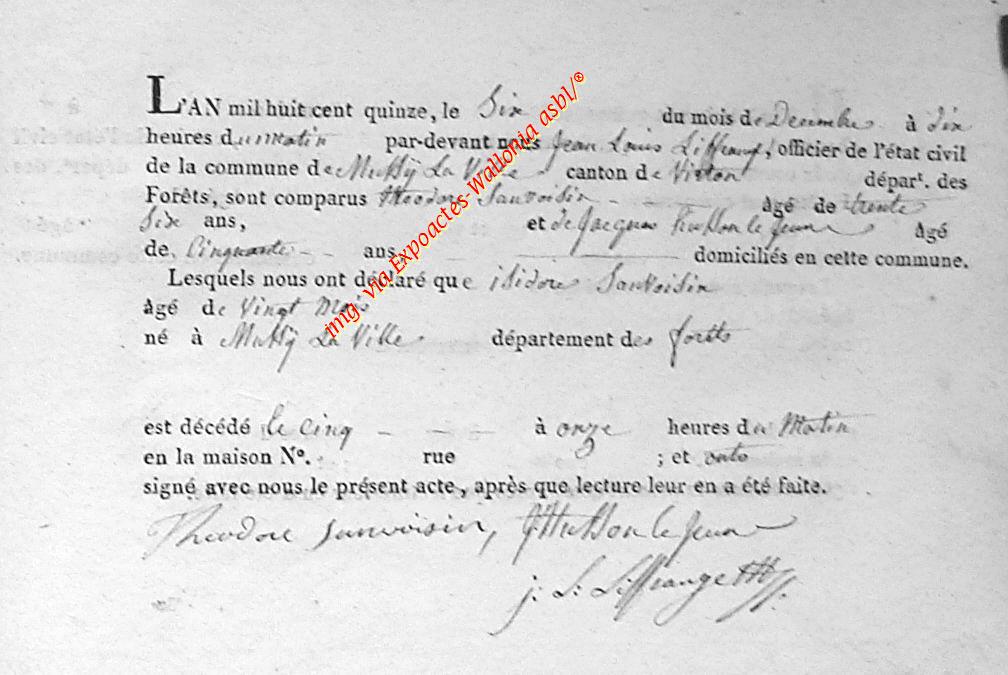 L'AN mil huit cent quinze, le Six du mois de Decembre à dix
heures du matin par-devant nous Jean Louis Liffrange, officier de l'état civil
de la commune de Mussy La Ville canton de Virton départ. des
Forêts, sont comparus Theodore Sauvoisin âgé de trente
Six ans, et de Jacques husson le jeune âgé
de Cinquante ans, domiciliés en cette commune.
Lesquels nous ont déclaré que isidore Sauvoisin
âgé de Vingt Mois
né à Mussy La Ville département des forêts
est décédé le cinq à onze heures du Matin
en la maison N°. rue ; et onts
signé avec nous le présent acte, après que lecture leur en a été faite.
Theodore sauvoisin, J husson le jeune
j: L: Liffrange
img. via Expoactes-Wallonia asbl/®